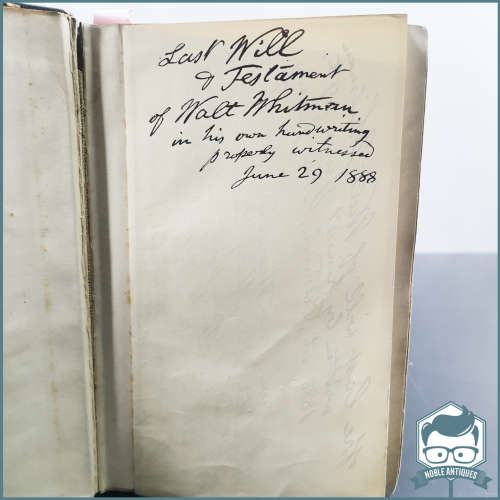 Last Will
& Testament
of Walt Whitman
in his own handwriting
properly witnessed
June 29 1888
NOBLE ANTIQUES